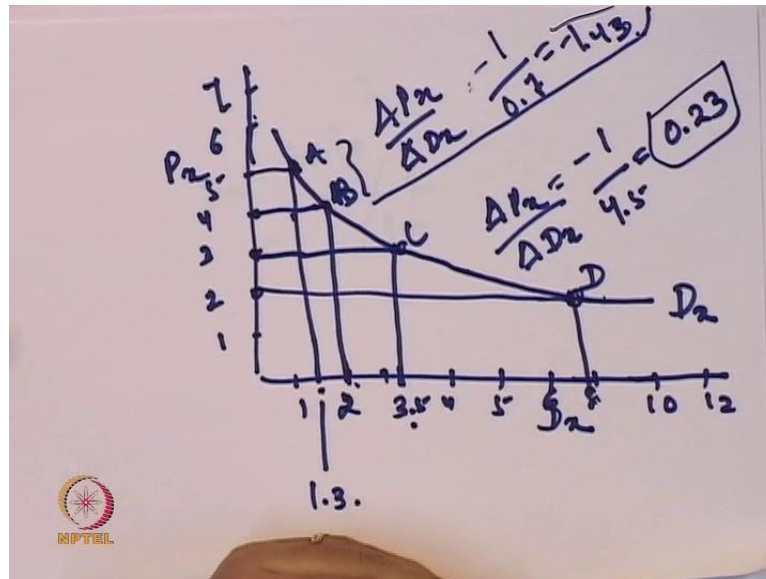 ΔPx / ΔDx = -1 / 0.7 = -1.43
ΔPx / ΔDx = -1 / 4.5 = 0.23
7
6
Px
5
4
3
2
1
A
B
C
D
Dx
1 2 3.5 4 5 6 8 10 12
Dx
1.3.
NPTEL